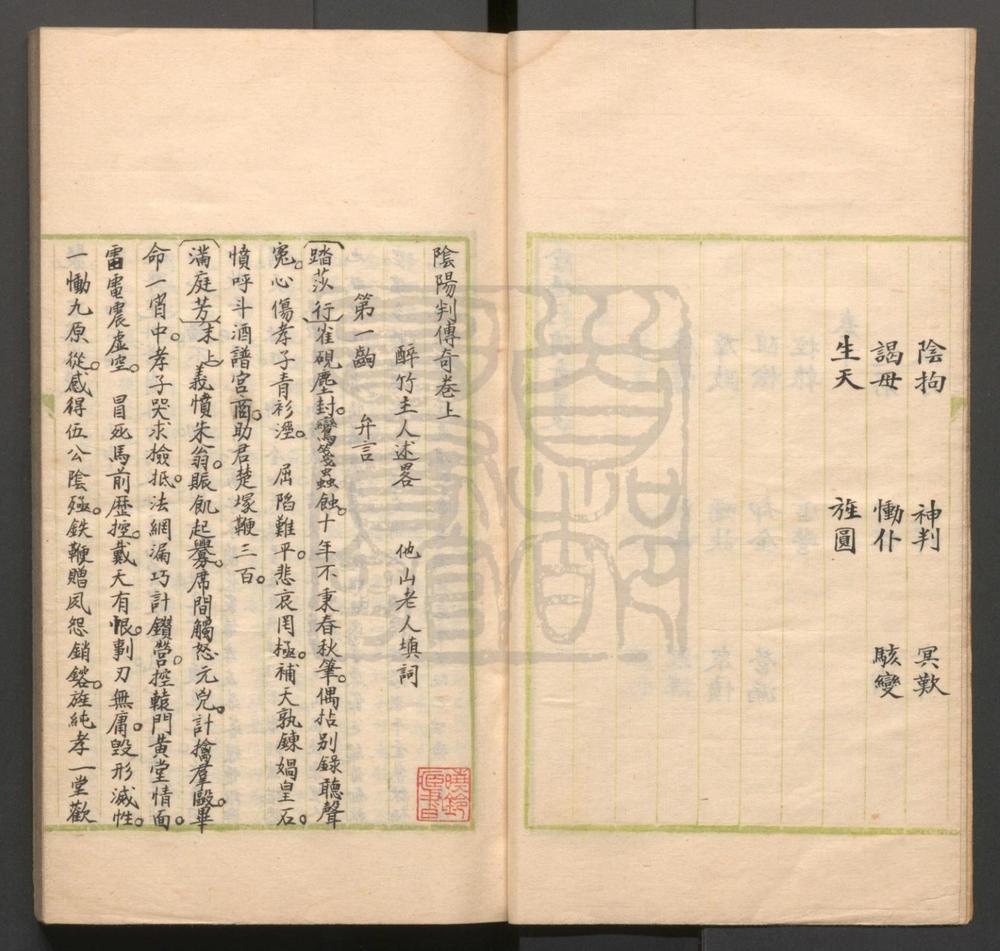 陰拘 神判 冥歎
謁母 慟仆 駭變
生天 旌圓
陰陽判傳奇卷上
醉竹主人述畧 他山老人填詞
第一齣 弁言
踏莎行雀硯塵封。鸞箋蟲蝕。十年不秉春秋筆。偶拈別錄聽聲
冤。心傷孝子青衫溼。 屈陷難平。悲哀罔極。補天孰鍊媧皇石。
憤呼斗酒譜宮商。助君楚塚鞭三百。
滿庭芳末上義憤朱翁。賑飢起釁。席間觸怒元兇。計擒羣毆。畢
命一宵中。孝子哭求檢抵。法網漏巧計鑽營。控轅門黃堂情面。
雷電震虛空。 冒死馬前歷控。戴天有恨。剚刃無庸。毀形滅性。
一慟九原從。感得伍公陰殛。鉄鞭贈夙怨銷鎔。旌純孝一堂歡
曉鈴藏書